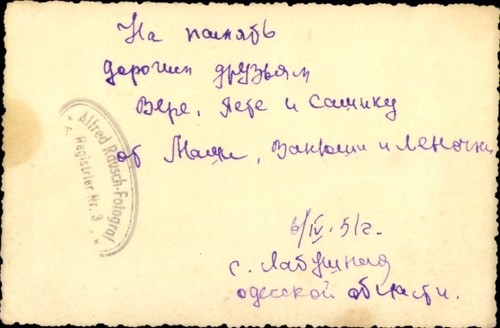 На память
дорогим друзьям
Вере, Пете и Сашику
от Маши, Ванюши и Леночки
6/IV.51г.
с. Лабушная
одесской области.
Alfred Rausch-Fotograf
Registrier Nr. 3